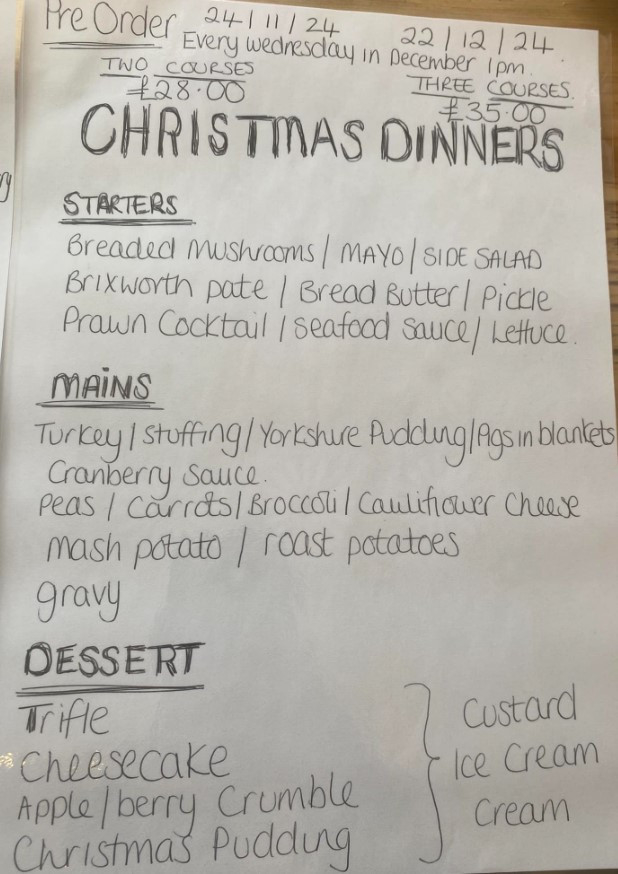 Pre Order 24/11/24 22/12/24
Every wednesday in December 1pm.
TWO COURSES THREE COURSES.
£28.00 £35.00
CHRISTMAS DINNERS
STARTERS
Breaded mushrooms / MAYO / SIDE SALAD
Brixworth pate / Bread Butter / Pickle
Prawn Cocktail / Seafood Sauce / Lettuce.
MAINS
Turkey / Stuffing / Yorkshire Pudding / Pigs in blankets
Cranberry Sauce.
Peas / Carrots / Broccoli / Cauliflower Cheese
mash potato / roast potatoes
gravy
DESSERT
Trifle
Cheesecake
Apple / berry Crumble
Christmas Pudding
Custard
Ice Cream
Cream